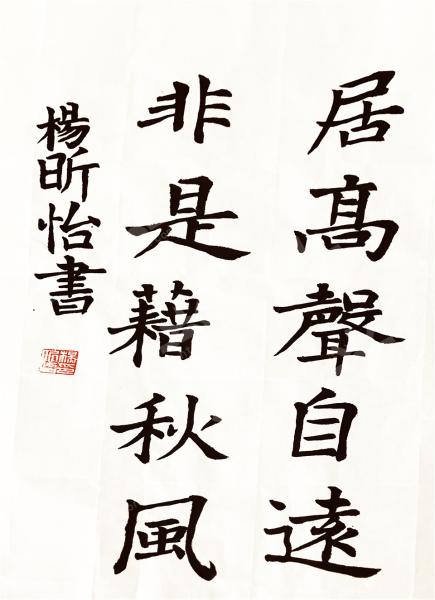 居高聲自遠
非是藉秋風
楊昕怡書